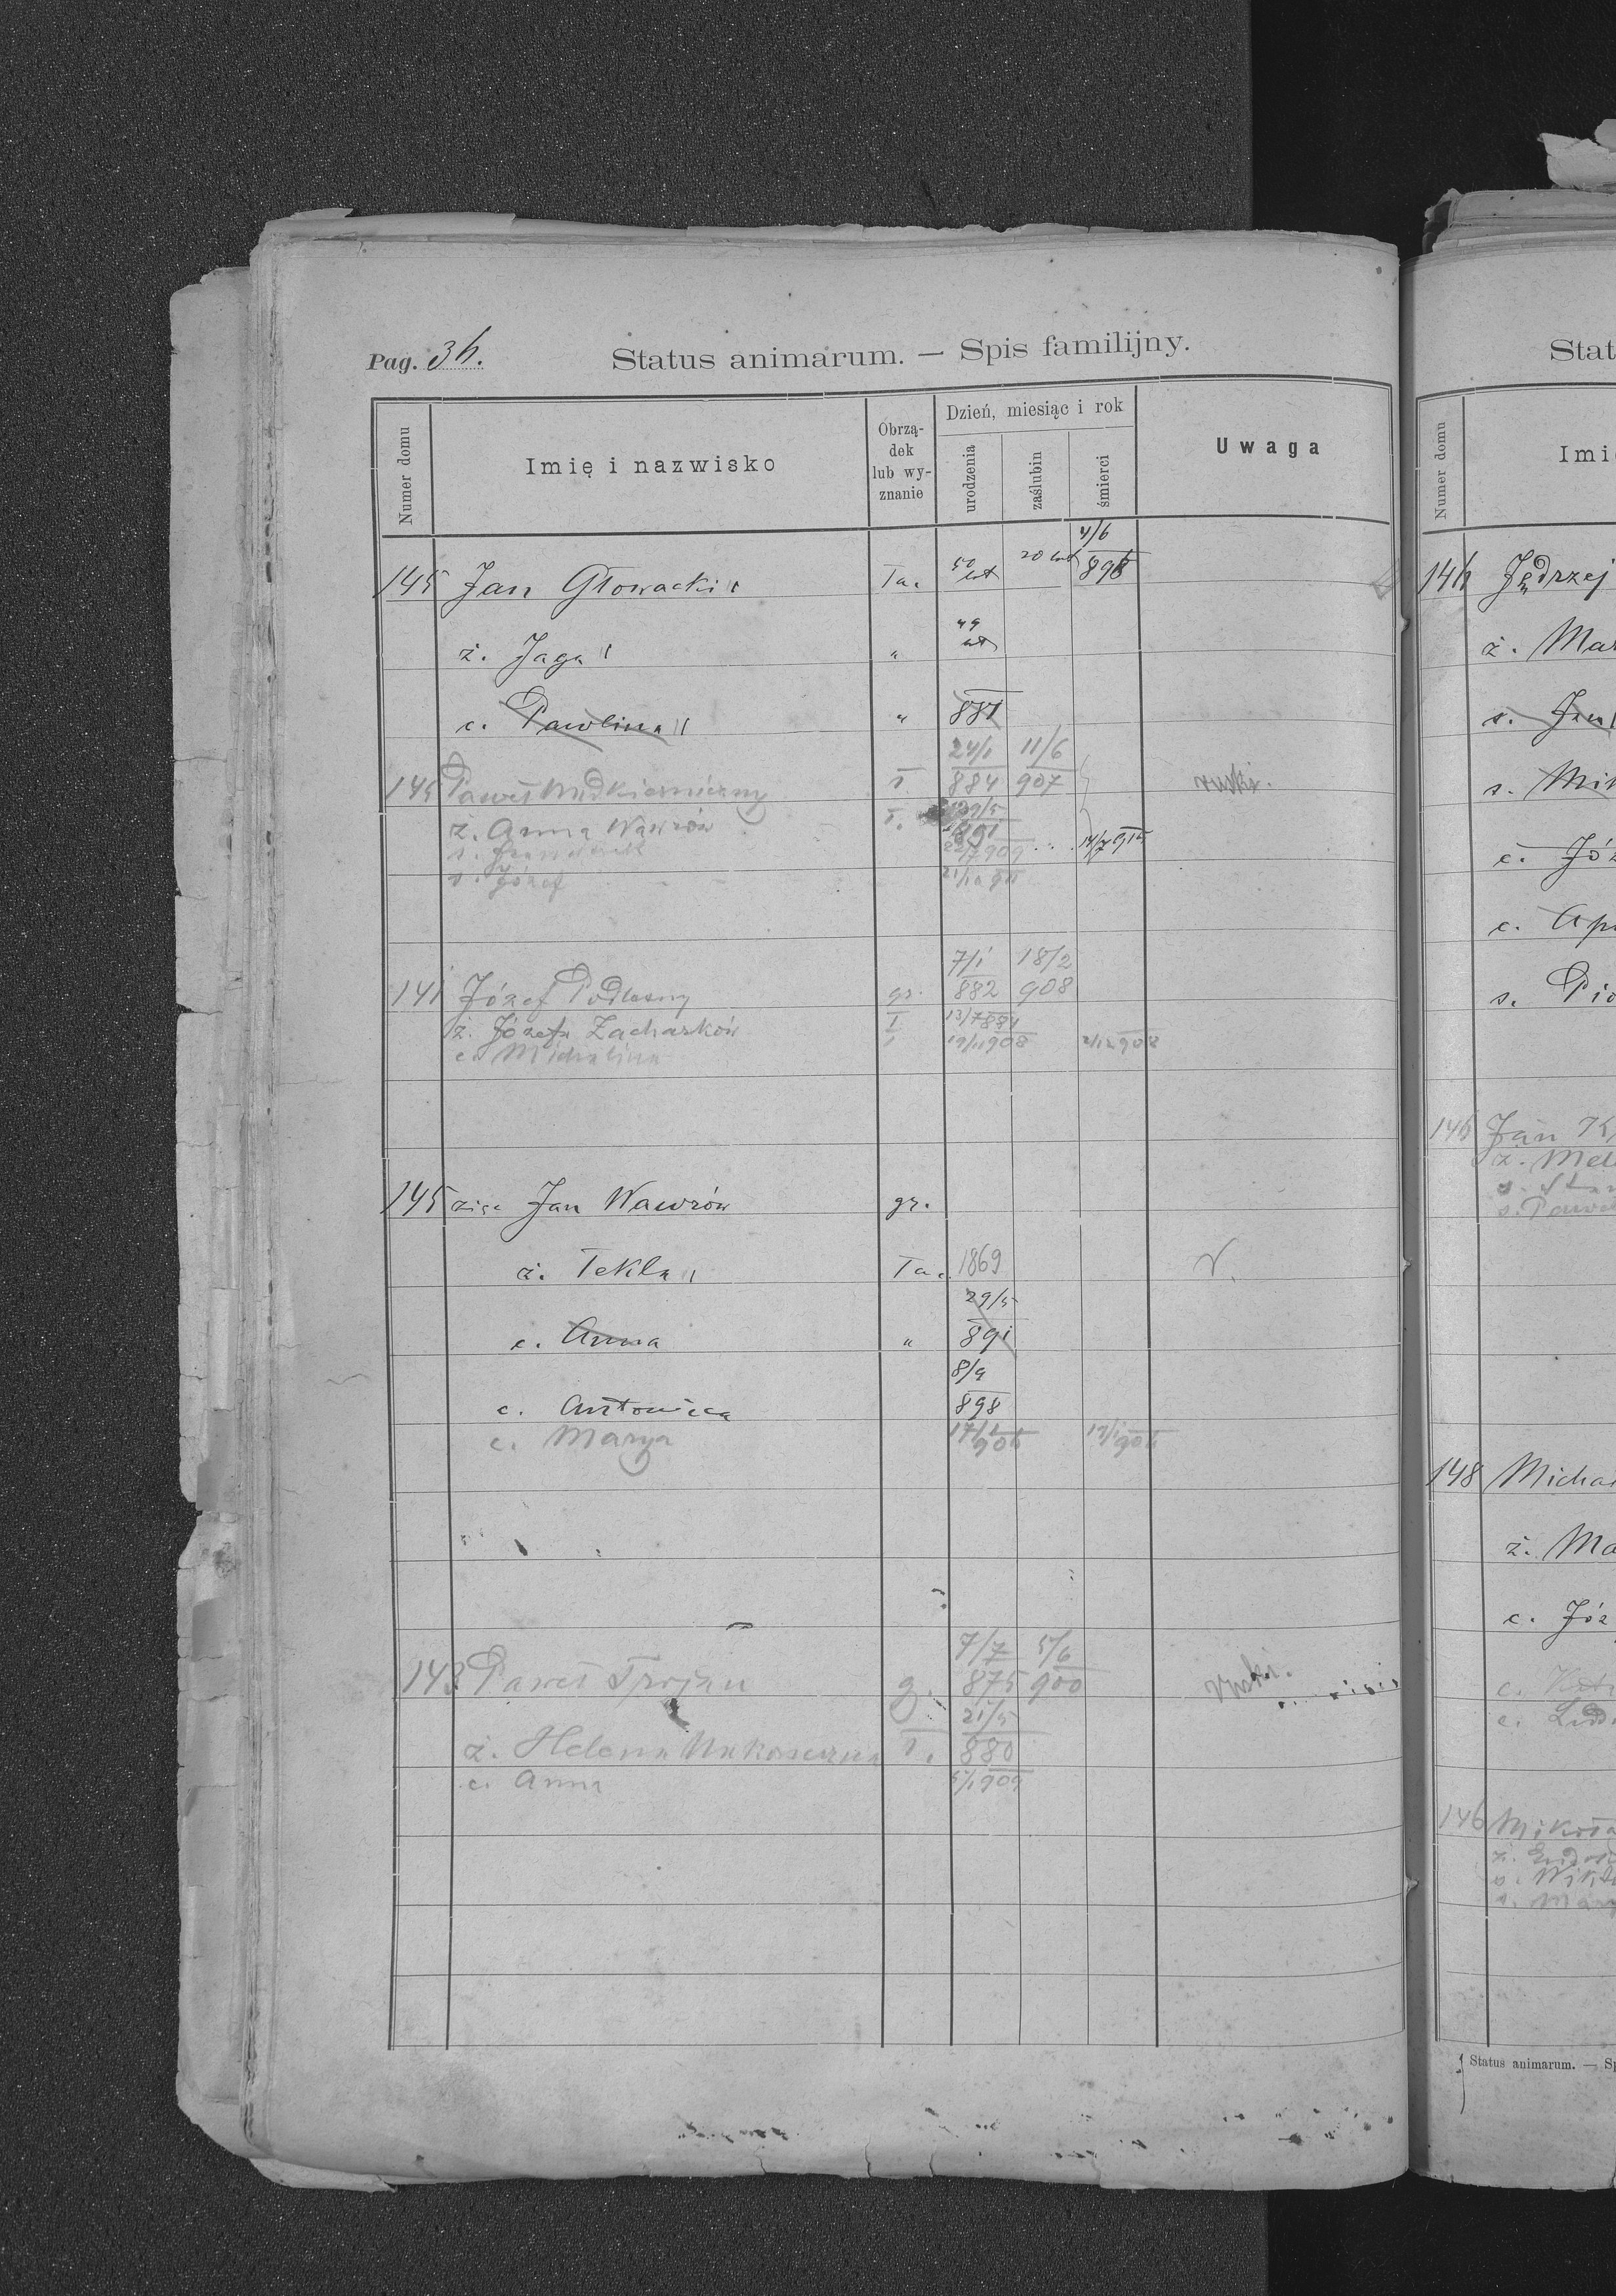 Pag. 36.
Status animarum. — Spis familijny.
Numer domu
Imię i nazwisko
Obrzą-
dek
lub wy-
znanie
Dzień, miesiąc i rok
urodzenia
zaślubin
śmierci
Uwaga
145 Jan Głowacki ła. 50 lat 20 lat 4/6 898
ż. Jaga " 49 lat
c. Pawlina " 881
145 Paweł ł. 24/1 884 11/6 907 ruski.
ż. Anna Wawrów ł. 29/5 891
s. 22/7 909 14/7 912
s. Józef 21/10 911
141 Józef Podlasny gr. 7/1 882 18/2 908
ż. Józefa Zacharków ł 13/7 884
c. Michalina ł 19/11 908 2/12 908
145 zięć Jan Wawrów gr.
ż. Tekla ła. 1869 r.
c. Anna " 29/5 891
c. Antonina 8/9 898
c. Marya
143 Paweł g. 7/7 875 5/6 900 ruski.
ż. Helena ł. 21/5 880
c. Anna 5/1 909
Stat
Numer domu
Imi
146 Jędrzej
ż. Mar
s. Jan
s. Mik
c. Józ
c. Ap
s. Pio
146 Jan
ż. Mel
148 Micha
ż. Ma
c. Józ
146 Mikoła
s. Wikt
Status animarum. — Sp